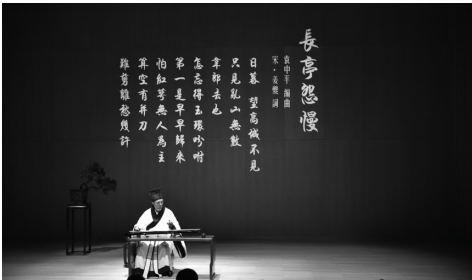 長亭怨慢
袁中平 編曲
宋·姜夔 詞
日暮 望高城不見
只見亂山無數
韋郎去也
怎忘得玉環吩咐
第一是早早歸來
怕紅萼無人為主
算空有并刀
難剪離愁幾許